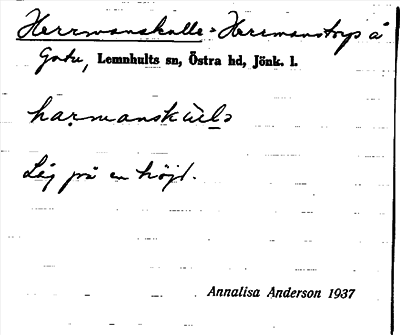 Herrmanskulle = Herrmanstorps å
Gata, Lemnhults sn, Östra hd, Jönk. l.
harmanskùlə
Låg på en höjd.
Annalisa Anderson 1937